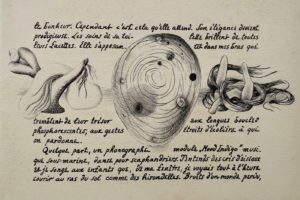 le bonheur. Cependant c'est cela qu'elle attend. Son élégance devient
prodigieuse. Les soins de sa toi- lette brillent de toutes
leurs facettes. Elle s'appesan- est dans mes bras qui
tremblent de leur trésor aux longues boucles
phosphorescentes, aux gestes étroits d'écolière à qui
on pardonne.
Quelque part, un phonographe module Mood Indigo musi-
que sous-marine, danse pour scaphandriers. J'entends des cris d'oiseaux
et je songe aux enfants que, de ma fenêtre, je voyais tout à l'heure
courir au ras du sol comme des hirondelles. Bruits d'un monde perdu,